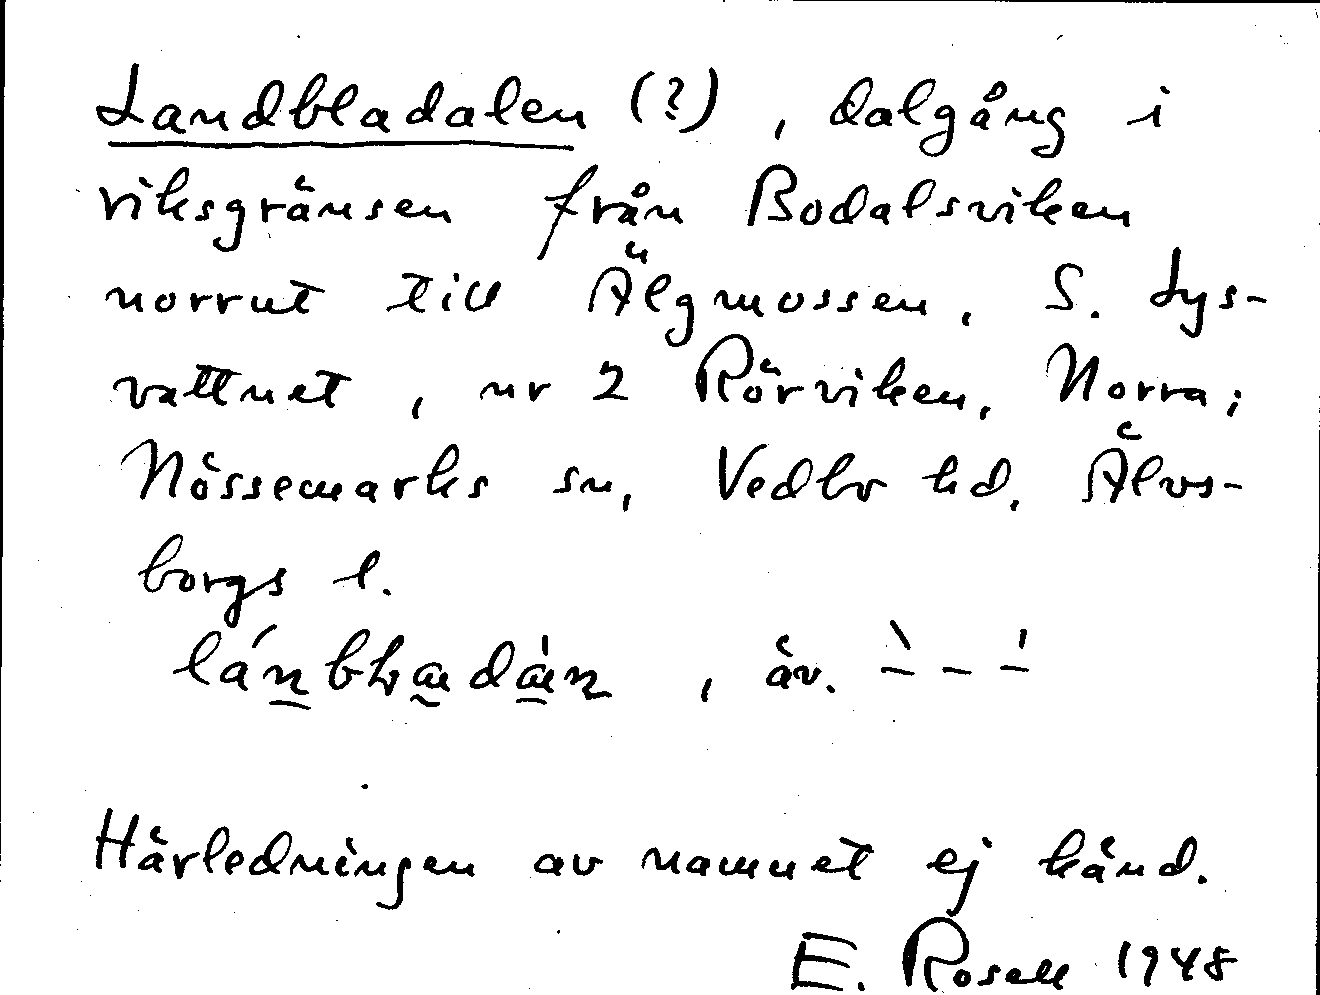 Landbladalen (?), dalgång i
riksgränsen från Bodalsviken
norrut till Älgmossen, S. Lys-
vattnet, nr 2 Rörviken, Norra;
Nössemarks sn, Vedbo hd, Älvs-
borgs l.
, äv.
Härledningen av namnet ej känd.
E. Rosell 1948